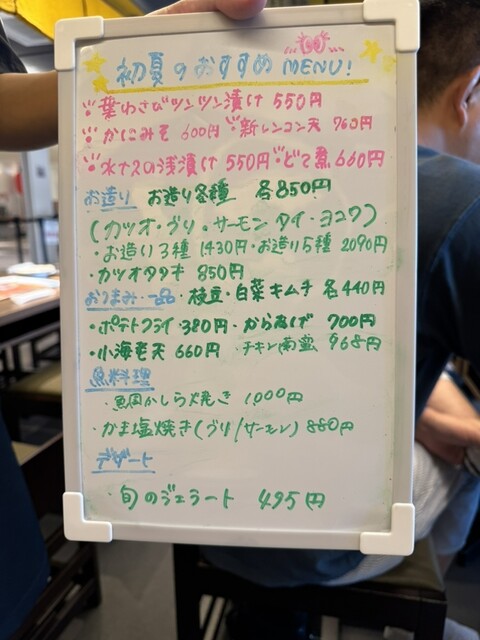 初夏のおすすめ MENU!
葉わさびツンツン漬け 550円
かにみそ 600円 新レンコン天 760円
水ナスの浅漬け 550円 どて煮 660円
お造り お造り各種 各850円
(カツオ・ブリ・サーモン タイ・ヨコワ)
・お造り3種 1430円・お造り5種 2090円
・カツオタタキ 850円
おつまみ一品 ・枝豆・白菜キムチ 各440円
・ポテトフライ・380円・から揚げ 700円
・小海老天 660円 チキン南蛮 968円
魚料理
・魚のかしら焼き 1,000円
・かま塩焼き(ブリ/サーモン) 880円
デザート
・旬のジェラート 495円